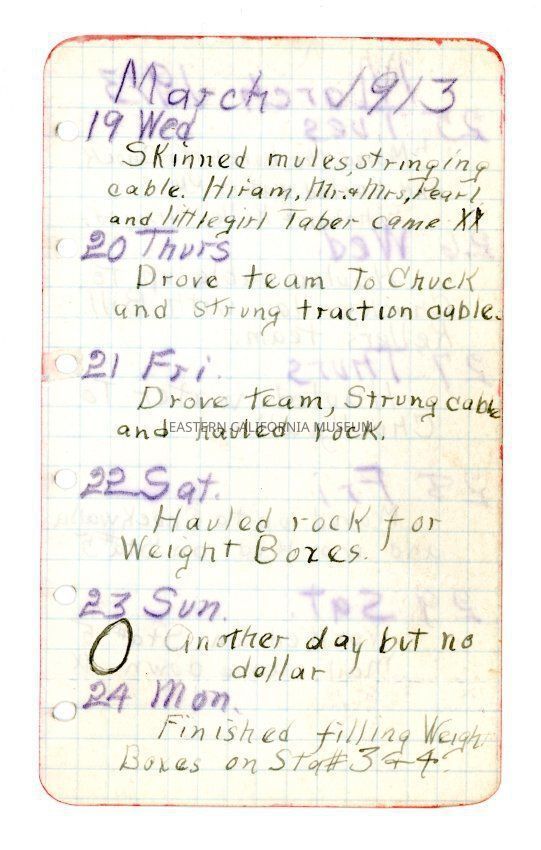 March 1913
19 Wed
Skinned mules, stringing
cable. Hiram, Mr. & Mrs, Pearl
and little girl Taber came XX
20 Thurs
Drove team To Chuck
and strung traction cable.
21 Fri.
Drove team, Strung cable
and hauled rock.
EASTERN CALIFORNIA MUSEUM
22 Sat.
Hauled rock for
Weight Boxes.
23 Sun.
O Another day but no
dollar
24 Mon.
Finished filling Weigh
Boxes on Sta# 3 & 4